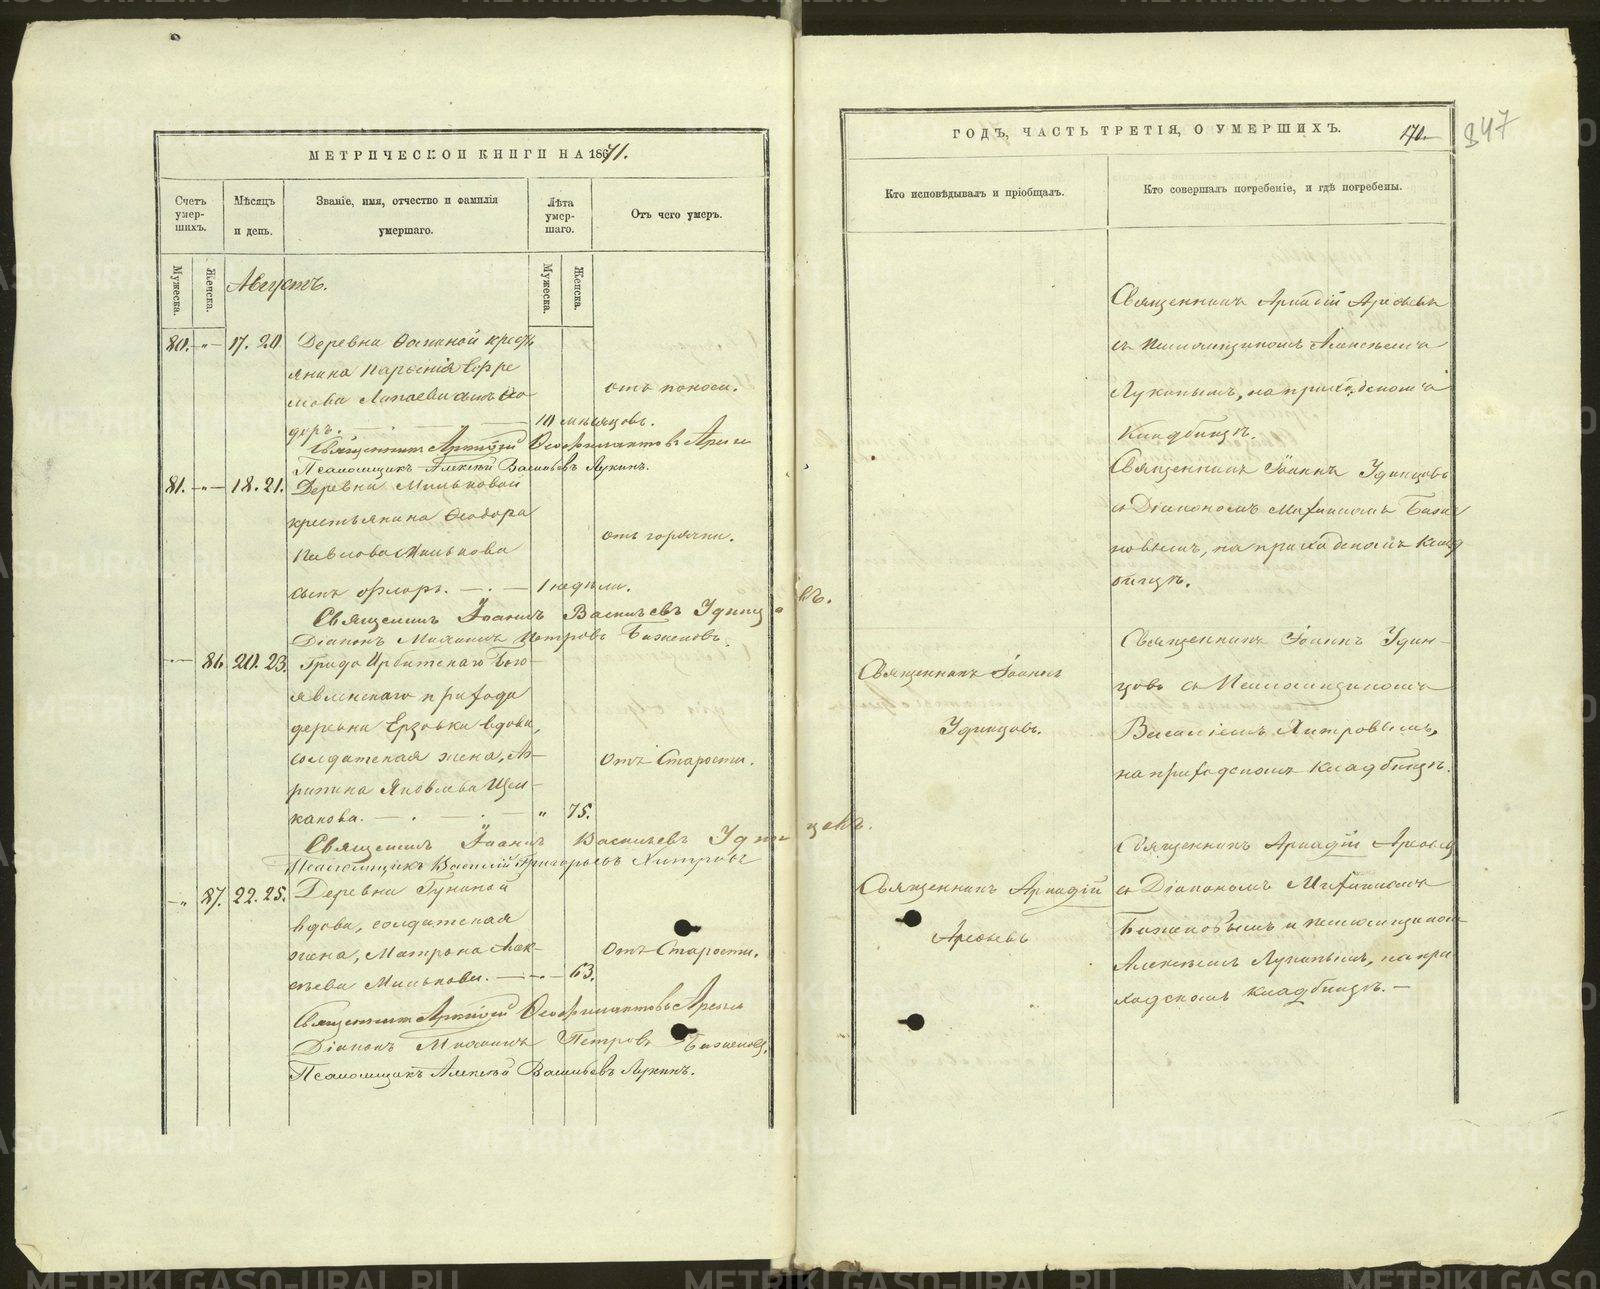 МЕТРИЧЕСКОЙ КНИГИ НА 1871.
Счетъ умер-шихъ.
Мѣсяцъ и день.
Званіе, имя, отчество и фамилія умершаго.
Лѣта умер-шаго.
Отъ чего умеръ.
Мужеска.
Женска.
Мужеска.
Женска.
Августъ.
80. 17. 20 Деревни крестъ
янина Ефре
мова сынъ Ѳео
доръ. 10 мѣсяцовъ.
отъ поноса.
Священникъ Аркадій Ѳеофилактовъ
Псаломщикъ Алексѣй Васильевъ Лукинъ.
81. 18. 21. Деревни Мильковой
крестьянина Ѳеодора
Павлова Милькова
сынъ Флоръ. 1 недѣли.
отъ горячки.
Священникъ Іоаннъ Васильевъ Удинцовъ.
Діаконъ Михаилъ Петровъ Баженовъ.
86. 20. 23. Града Ирбитскаго Бого-
явленскаго прихода
деревни Ерзовки вдова,
солдатская жена, Аг-
рипина Яковлева Щел-
канова. " 75.
Отъ Старости.
Священникъ Іоаннъ Васильевъ Удинцевъ.
Псаломщикъ Василій Григорьевъ Хитровъ
87. 22. 25. Деревни Гуниной
вдова, солдатская
жена, Матрона Алек-
сѣева Милькова. 63.
Отъ Старости.
Священникъ Аркадій Ѳеофилактовъ
Діаконъ Михаилъ Петровъ Баженовъ.
Псаломщикъ Алексѣй Васильевъ Лукинъ.
ГОДЪ, ЧАСТЬ ТРЕТІЯ, О УМЕРШИХЪ.
347
Кто исповѣдывалъ и пріобщалъ.
Кто совершалъ погребеніе, и гдѣ погребены.
Священникъ Аркадій
съ Псаломщикомъ Алексѣемъ
Лукинымъ, на приходскомъ
Кладбищѣ.
Священникъ Іоаннъ Удинцовъ
съ Діакономъ Михаиломъ Баже
новымъ, на приходскомъ Клад
бищѣ.
Священникъ Іоаннъ
Удинцовъ.
Священникъ Іоаннъ Удин-
цовъ съ Псаломщикомъ
Василіемъ Хитровымъ,
на приходскомъ Кладбищѣ.
Священникъ Аркадій
Священникъ Аркадій
съ Діакономъ Михаиломъ
Баженовымъ и псаломщикомъ
Алексѣемъ Лукинымъ, на при
ходскомъ Кладбищѣ.
METRIKI.GASO-URAL.RU